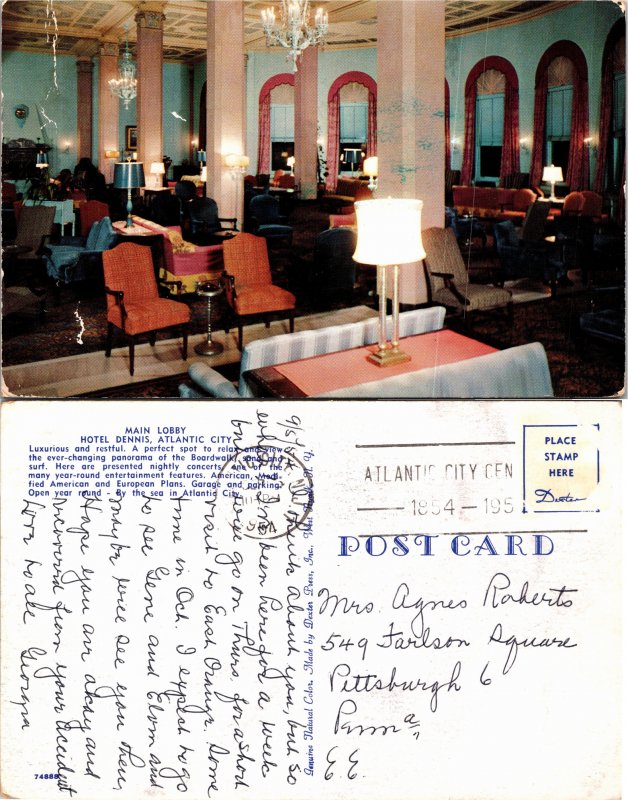 MAIN LOBBY
HOTEL DENNIS, ATLANTIC CITY
Luxurious and restful. A perfect spot to relax and view
the ever-changing panorama of the Boardwalk, sand and
surf. Here are presented nightly concerts, one of the
many year-round entertainment features. American, Modi-
fied American and European Plans. Garage and parking.
Open year round - By the sea in Atlantic City.
9/5/54
think about you, but so
been here for a week
go on Thurs. for a short
visit to East Orange. Some
time in Oct. I expect to go
to see Gene and Elvm and
maybe will see you then,
Hope you are okay and
recovered from your accident
Love to all Georgia
74888
Genuine Natural Color, Made by Dexter Press, Inc., West Nyack, N. Y.
ATLANTIC CITY CEN
1854-195
PLACE
STAMP
HERE
Dexter
POST CARD
Mrs. Agnes Roberts
549 Farlson Square
Pittsburgh 6
Penna